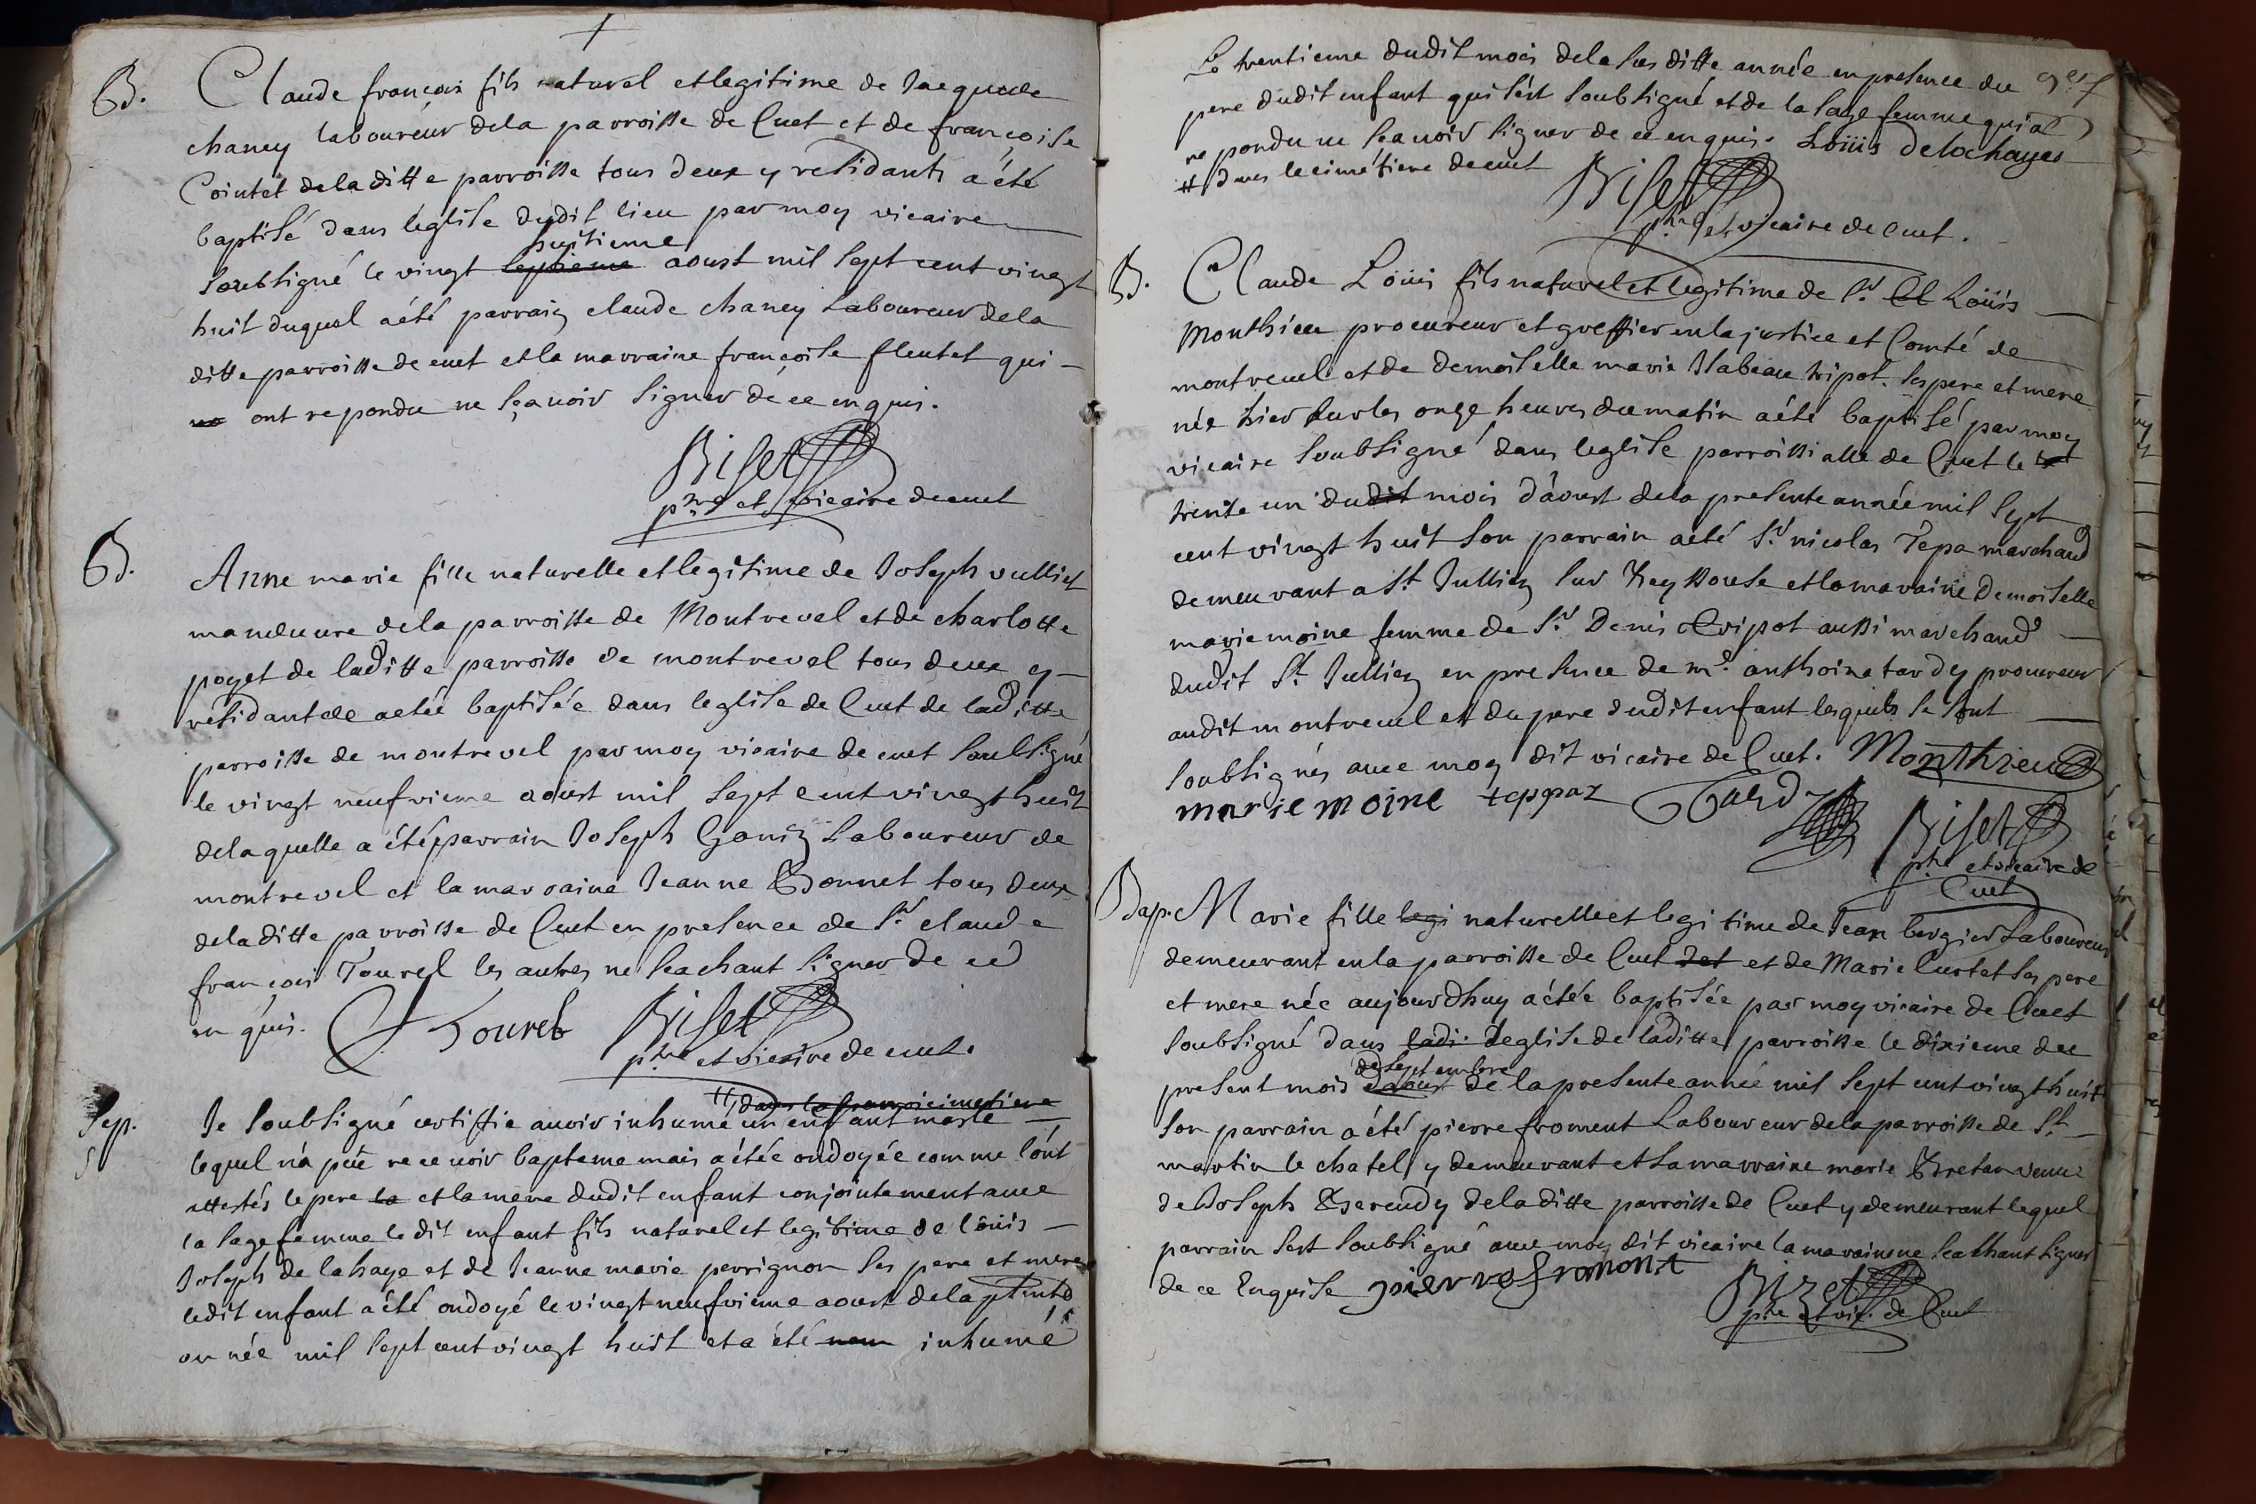 B. Claude françois fils naturel et legitime de Jacques
chaney laboureur de la parroisse de Cuet et de françoise
Cointet de la ditte parroisse tous deux y residants a été
baptisé dans leglise dudit lieu par moy vicaire
huitieme
soubsigné le vingt septieme aoust mil sept cent vingt
huit duquel a été parrain claude chaney Laboureur de la
ditte parroisse de cuet et la marraine françoise fleutet qui
ont repondu ne sçavoir signer de ce enquis.
Biset
ptre et vicaire de cuet
B. Anne marie fille naturelle et legitime de Joseph vulliet
manœuvre de la parroisse de Montrevel et de charlotte
poget de laditte parroisse de montrevel tous deux y
residant a été baptisée dans leglise de Cuet de laditte
parroisse de montrevel par moy vicaire de cuet soubsigné
le vingt neufvieme aoust mil sept cent vingt huit
de laquelle a été parrain Joseph Gonin Laboureur de
montrevel et la marraine Jeanne Bonnet tous deux
de la ditte parroisse de Cuet en presence de Sr claude
françois Tourel les autres ne scachant signer de ce
enquis. Tourel Biset
ptre et vicaire de cuet.
# dans le cimetiere
Sep. Je soubsigné certiffie avoir inhumé un enfant masle
lequel n'a pue recevoir bapteme mais a étée ondoyée comme l'ont
attestés le pere la et la mere dudit enfant conjointement avec
la sagefemme ledit enfant fils naturel et legitime de loüis
Joseph de lahaye et de Jeanne marie perrignon ses pere et mere
ledit enfant a été ondoyé le vingt neufvieme aoust de la pnte
année mil sept cent vingt huit et a été inhumé
Le trentieme dudit mois de la sus ditte année en presence du
pere dudit enfant qui s'est soubsigné et de la sage femme qui a
repondu ne scavoir signer de ce enquis. Loüis delachayes
# dans le cimétiere de cuet Biset
ptre et vicaire de Cuet.
B. Claude Loüis fils naturel et legitime de Sr Cl Loüis
Monthieu procureur et greffier en la justice et Comté de
montrevel et de demoiselle marie Isabeau tripot. ses pere et mere
née hier sur les onze heures du matin a été baptisé par moy
vicaire soubsigné dans leglise parroissialle de Cuet le
trente un dudit mois d'aoust de la presente année mil sept
cent vingt huit son parrain a été Sr nicolas Tepa marchand
demeurant a St Jullien sur Reyssouse et la maraine Demoiselle
marie moine femme de Sr Denis tripot aussi marchand
dudit St Jullien en presence de me anthoine tardy procureur
audit montrevel et du pere dudit enfant lesquels se sont
soubsignés avec moy dit vicaire de Cuet. Monthieu
marie moine teppaz Tardy
Biset
ptre et vicaire de
Cuet
Bap. Marie fille legi naturelle et legitime de Jean bergier Laboureur
demeurant en la parroisse de Cuet det et de Marie Curtet ses pere
et mere née aujourdhuy a étée baptisée par moy vicaire de Cuet
soubsigné dans ladi leglise de laditte parroisse le dixieme du
de septembre
present mois daoust de la presente année mil sept cent vingt huit
son parrain a été pierre froment Laboureur de la parroisse de St
martin le chatel y demeurant et sa marraine marie Bretan veuve
de Joseph de la ditte parroisse de Cuet y demeurant lequel
parrain sest soubsigné avec moy dit vicaire la maraine ne scachant signer
de ce Enquise pierre fromont
Bizet
ptre et vic. de Cuet